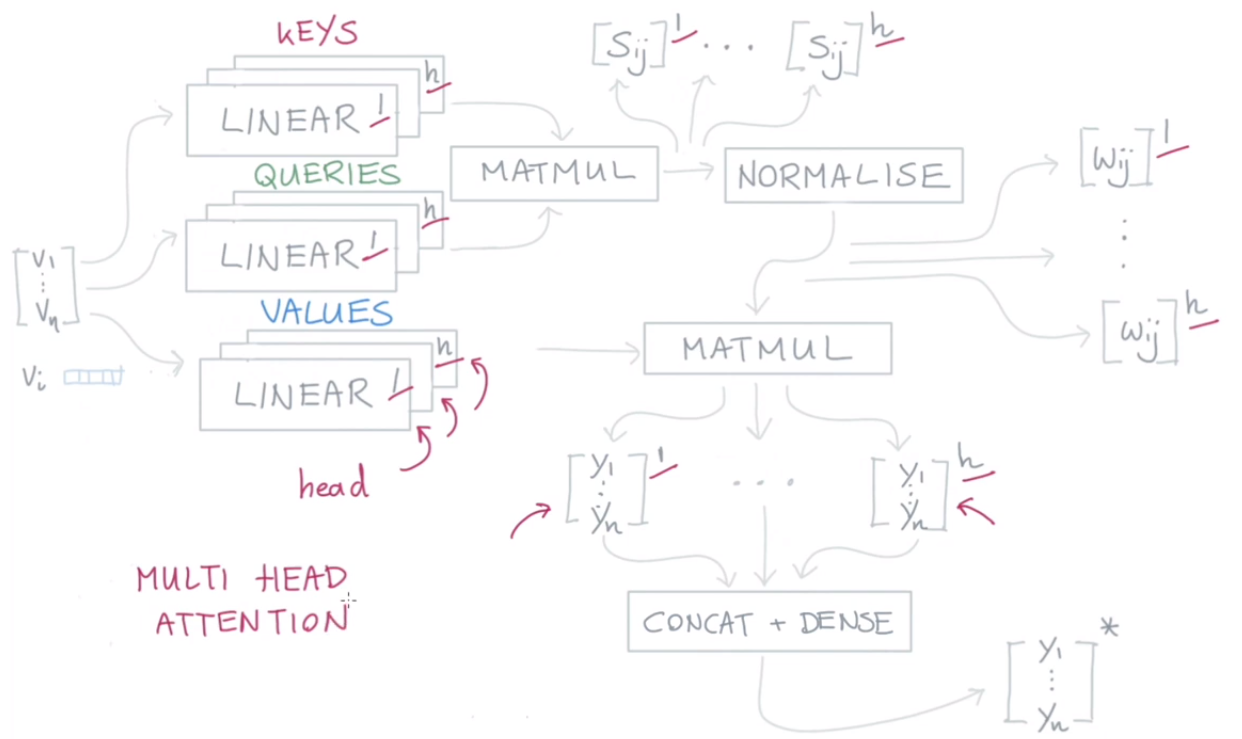 KEYS
LINEAR 1 h
QUERIES
LINEAR 1 h
VALUES
LINEAR 1 h
head
[V1 ⋮ Vn]
Vi
MATMUL
[Sij]^1 ... [Sij]^h
NORMALISE
[Wij]^1
⋮
[Wij]^h
MATMUL
[y1 ⋮ yn]^1 ... [y1 ⋮ yn]^h
CONCAT + DENSE
[y1 ⋮ yn]*
MULTI HEAD
ATTENTION